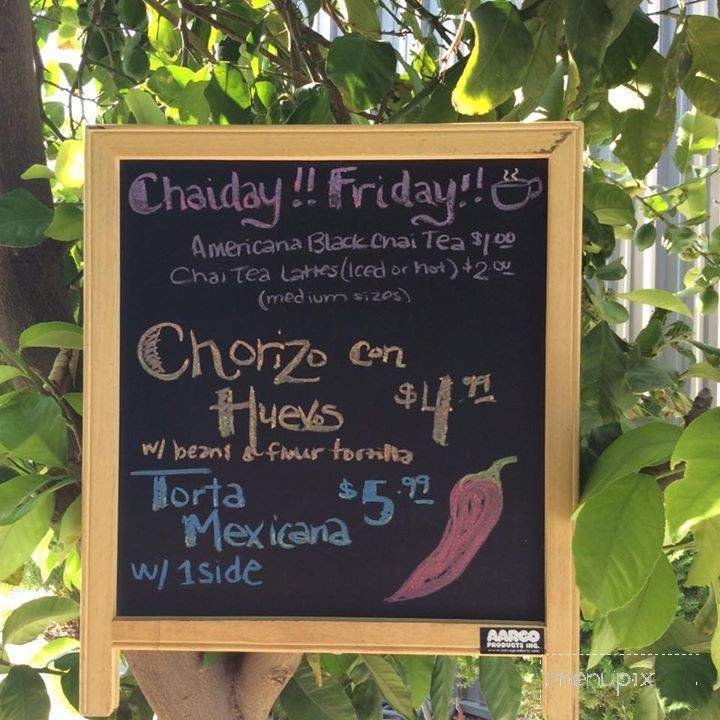 Chaiday!! Friday!!
Americana Black Chai Tea $1.00
Chai Tea Lattes (Iced or hot) $2.00
(medium sizes)
Chorizo con
Huevos $4.99
w/ beans & flour tortilla
Torta $5.99
Mexicana
w/ 1 side
AARCO
PRODUCTS INC.
menupix